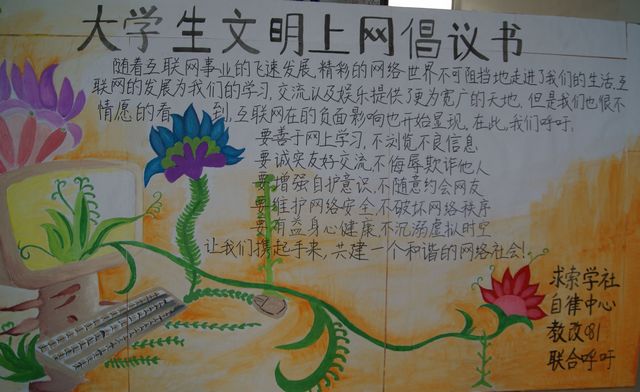 大学生文明上网倡议书
随着互联网事业的飞速发展,精彩的网络世界不可阻挡地走进了我们的生活.互
联网的发展为我们的学习,交流以及娱乐提供了更为宽广的天地,但是我们也很不
情愿的看到,互联网在的负面影响也开始显现,在此,我们呼吁:
要善于网上学习,不浏览不良信息
要诚实友好交流,不侮辱欺诈他人
要增强自护意识,不随意约会网友
要维护网络安全,不破坏网络秩序
要有益身心健康,不沉溺虚拟时空
让我们携起手来,共建一个和谐的网络社会!
求索学社
自律中心
教改081
联合呼吁